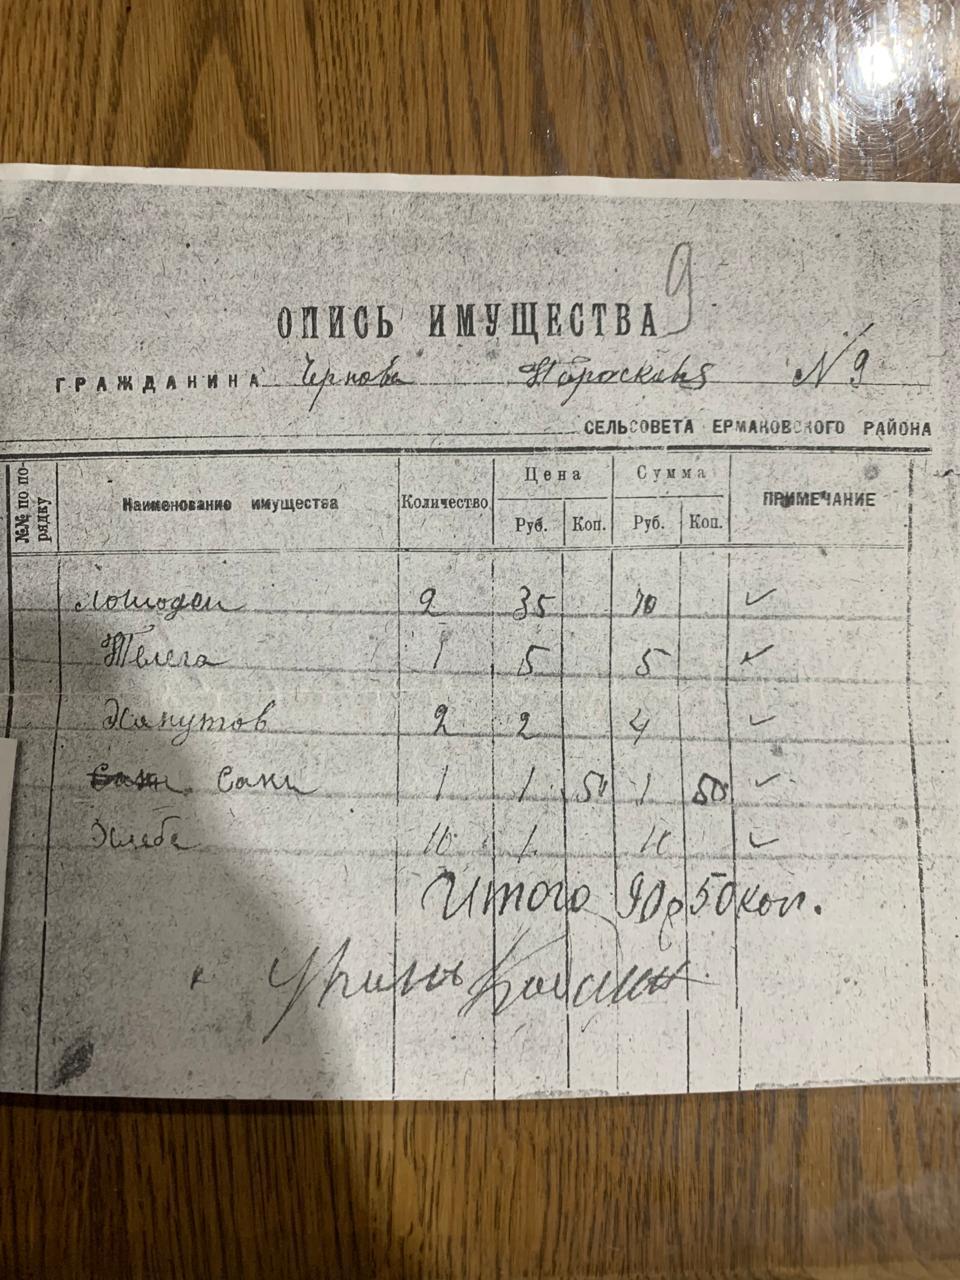 9
ОПИСЬ ИМУЩЕСТВА
ГРАЖДАНИНА Чернова № 9
СЕЛЬСОВЕТА ЕРМАКОВСКОГО РАЙОНА
№№ по порядку Наименование имущества Количество Цена Руб. Коп. Сумма Руб. Коп. ПРИМЕЧАНИЕ
Лошодей 2 35 70 ✓
Телега 1 5 5 ✓
Хомутов 2 2 4 ✓
Сани 1 1 50 1 50 ✓
Хлеба 10 1 10 ✓
Итого 90р 50 коп.